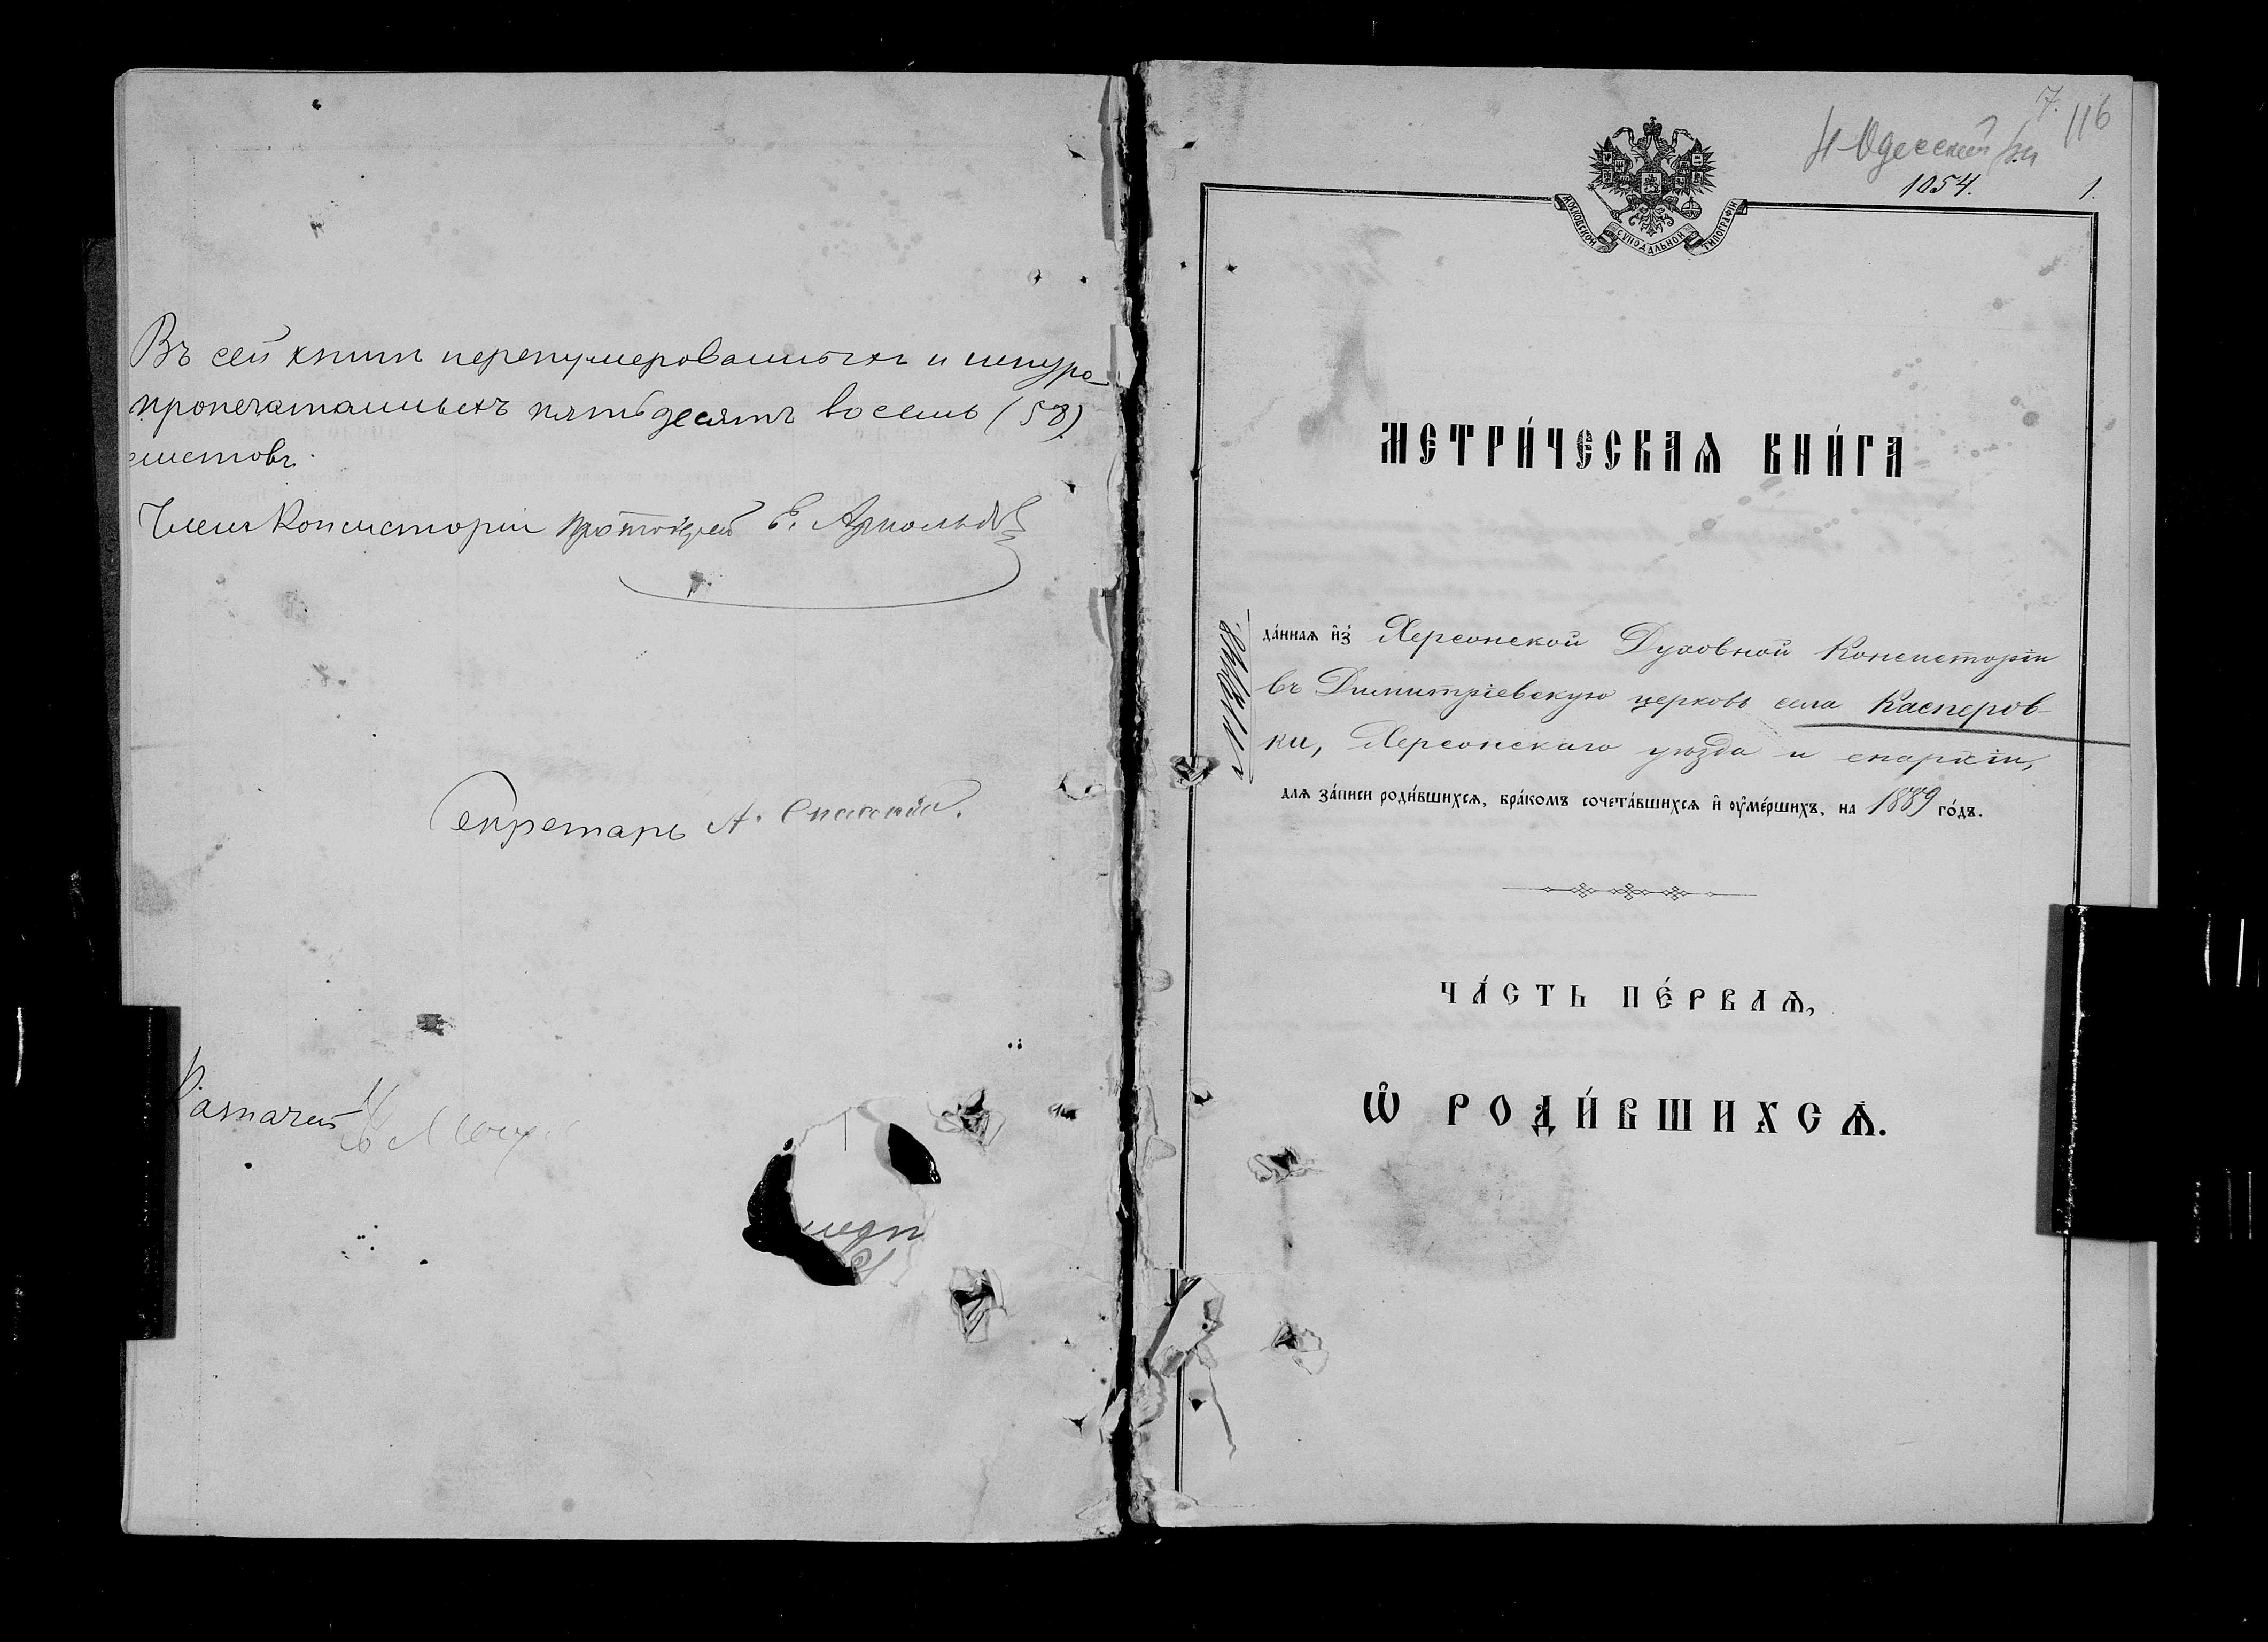 Въ сей книгѣ перенумерованныхъ и шнуро-
пропечатанныхъ пятьдесятъ восемь (58)
листовъ.
Членъ Консисторіи Протоіерей Е. Арнольдовъ
Секретарь А. Спасскій.
Казначей
7. 116
Н-Одесский р-н
1054. 1.
МОСКОВСКОЙ СѴНОДАЛЬНОЙ ТИПОГРАФІИ
МЕТРИ́ЧЕСКАѦ КНИ́ГА
да́ннаѧ и҆зъ Херсонской Духовной Консисторіи
въ Димитріевскую церковь села Касперов-
ки, Херсонскаго уѣзда и епархіи,
длѧ за́писи роди́вшихсѧ, бра́комъ сочета́вшихсѧ и҆ ᲂу҆ме́ршихъ, на 1889 го́дъ.
ЧА́СТЬ ПЕ́РВАѦ,
Ѡ҆ РОДИ́ВШИХСѦ.